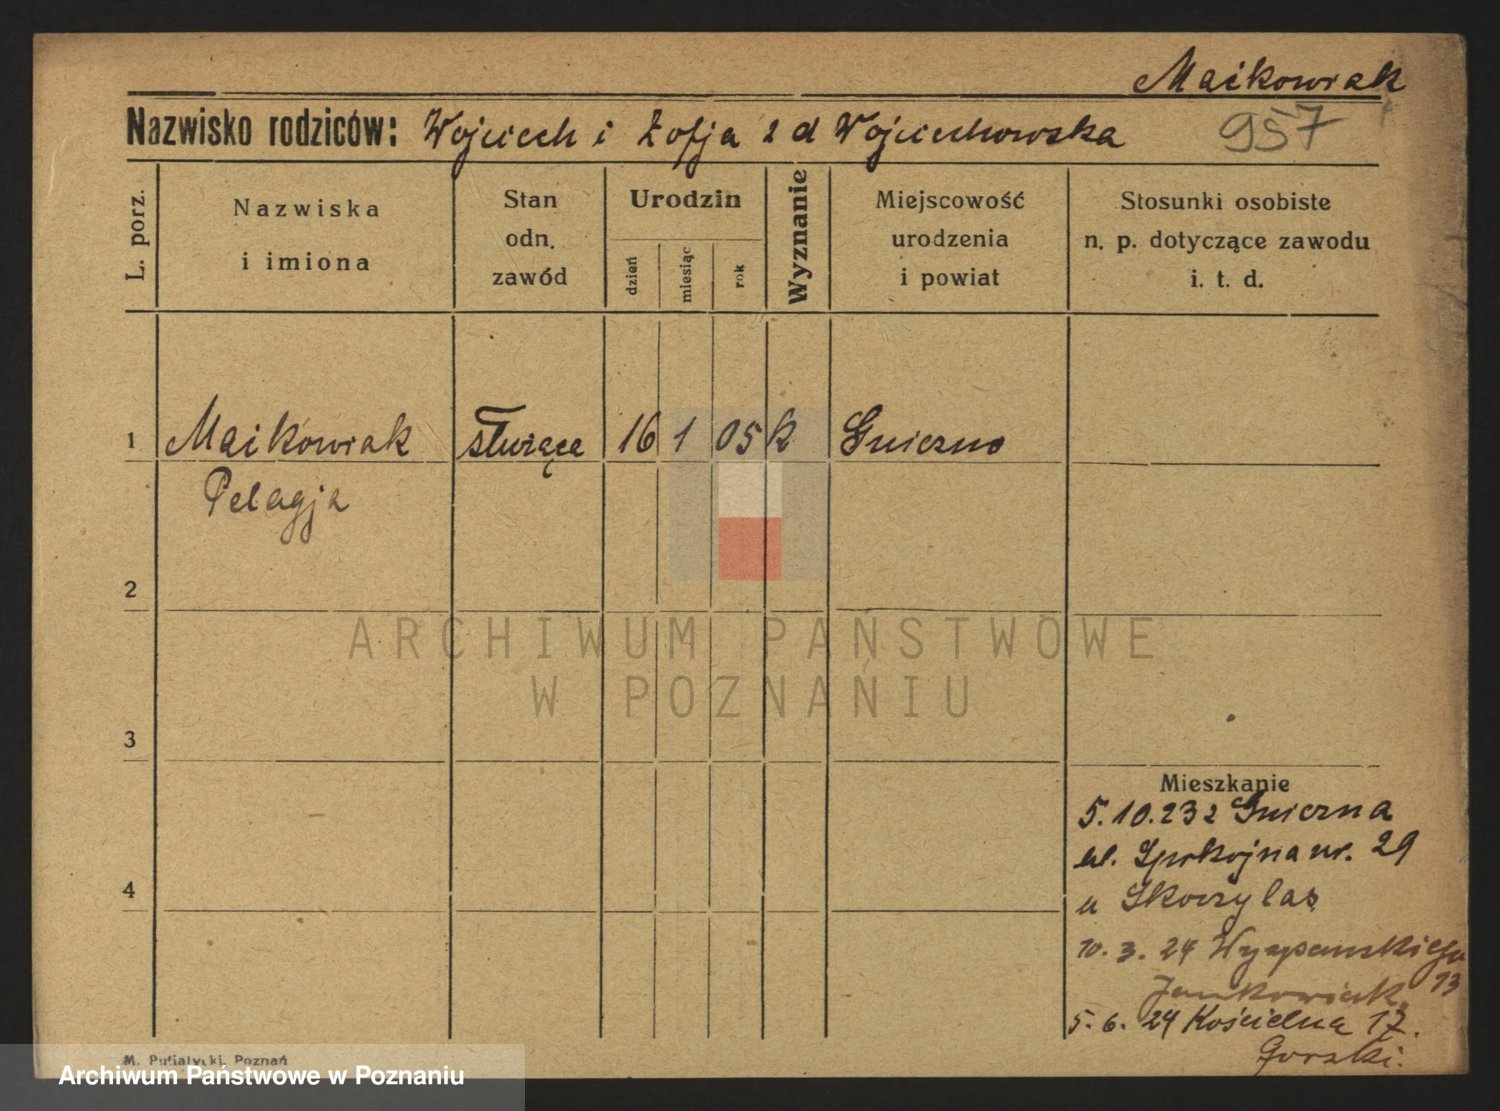 Maikowiak
Nazwisko rodziców: Wojciech i Zofja z d Wojciechowska 957
L. porz.
Nazwiska
i imiona
Stan
odn.
zawód
Urodzin
dzień
miesiąc
rok
Wyznanie
Miejscowość
urodzenia
i powiat
Stosunki osobiste
n. p. dotyczące zawodu
i. t. d.
1 Maikowiak służąca 16 1 05 k Gniezno
Pelagja
2
ARCHIWUM PAŃSTWOWE
W POZNANIU
3
Mieszkanie
5.10.23 z Gniezna
ul. Spokojna nr. 29
u Skoczylas
4
10. 3. 24 Wyspianskiego 13
Jankowiak
5. 6. 24 Kościelna 17.
Gorski.
M. Putiatycki, Poznań
Archiwum Państwowe w Poznaniu